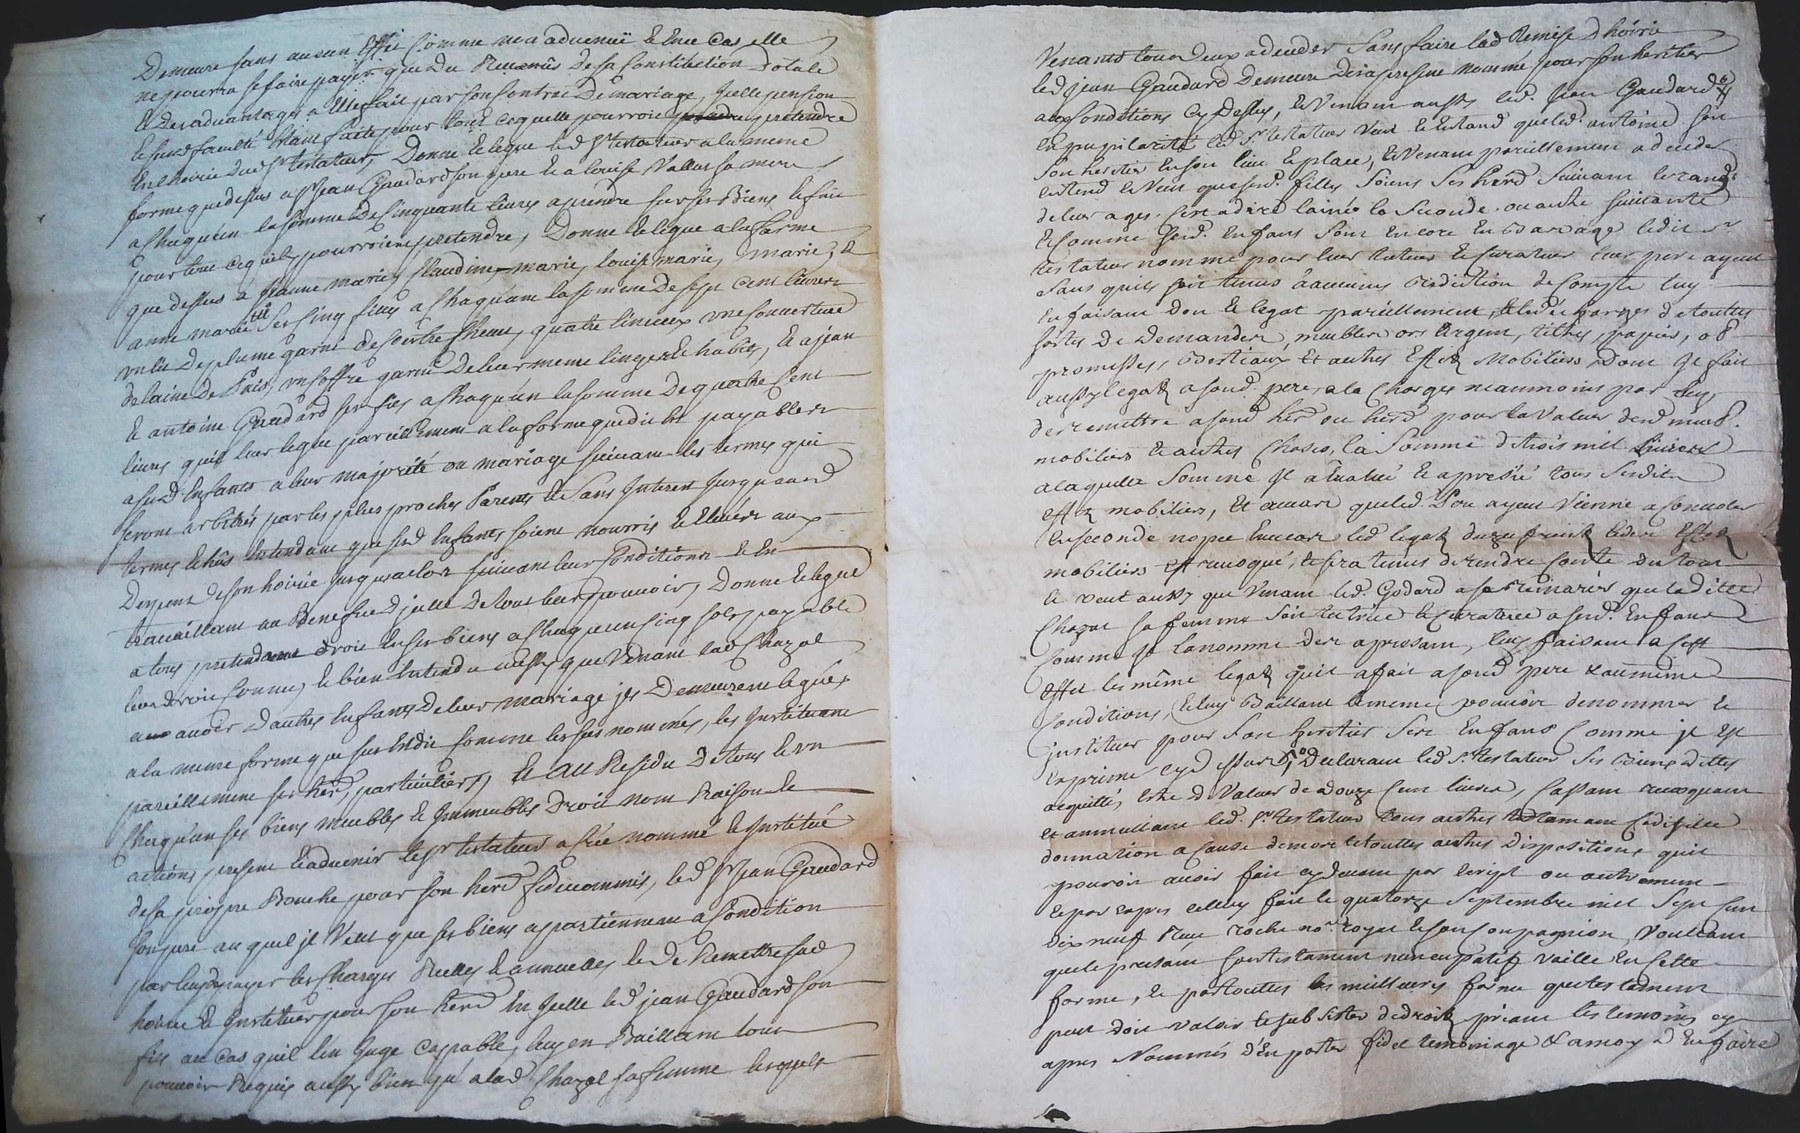 Demeure sans aucun effet comme non advenüe et en ce cas elle
ne pourra se faire payer que du Revenus de sa Constitution dotale
et des advantages a elle fait par son Contrac de mariage, quelle pension
et susd faculté étant faite pour tout ce quelle pourroit pretendre
en l'hoirie dud sr testateur, Donne et legue led sr testateur a la meme
forme que dessus a sr jean Gaudard son pere et a louise Vallas sa mere
a chaqu'un la somme de Cinquante livres a prendre sur ses Biens le fait
pour tout ce quils pourroient pretendre, Donne et legue a la forme
que dessus a jeanne marie, Claudine marie, louise marie, marie, et
anne marie ses Cinq filles a Chaqu'une la somme de sept cent livres
un lit de plume garni de Coitre Chevet, quatre linceux une Couverture
de laine de Païs, un Coffre garni de leur meme linge et habits, et a jean
et antoine Gaudard ses fils a Chaqu'un la somme de quatre Cent
livres qu'il leur legue pareillement a la forme que dit est payables
a susd Enfants a leur majorité ou mariage suivant les termes qui
seront arbitrés par les plus proches Parents et sans Interest jusqu'auxd
termes echûs entendant que susd Enfants soient nourris et Elevés aux
Depens de son hoirie jusqu'a alors suivant leur Condition et en
travaillant au Benefice d'jcelle de tout leur pouvoir, Donne et legue
a tous pretendans droit en ses biens a Chaqu'un Cinq sols payable
leur droit Connu, et bien entendu aussy que Venant lad Chazal
a avoir d'autres Enfants de leur mariage jls Demeurent legués
a la meme forme que sus est dit comme les sus nommés, les Instituant
pareillement ses herd. particuliers, et au Residu de tous et un
Chaqu'un ses biens meubles et Immeubles droit nom Raison et
actions present et advenir led sr testateur a créé nommé et Institué
de sa propre Bouche pour son herd fideicommis, led sr jean Gaudard
son pere au quel jl veut que ses biens appartiennent a Condition
par luy payer les Charges Reelles et annuelles et de Remettre sad
hoirie et Instituer pour son herd en jcelle led jean Gaudard son
fils au cas qu'il l'en juge Capable, luy en Baillant tout
pouvoir Requis aussy bien qu'a lad Chazal sa femme lesquels
Venants tous deux a deceder sans faire lad Remise d'hoirie
led jean Gaudard Demeure des a present nommé pour son heritier
aux Conditions Cy Dessus, et Venant aussy led. jean Gaudard
en pupilarité led sr testateur veut et entand que led. antoine soit
son heritier en son lieu et place, et Venant pareillement a deceder
entend et Veut que sesd. filles soient ses herd suivant le rang
de leur ages. C'est a dire l'ainée la seconde ou autre suivante
et Comme sesd. Enfans sont encore en bas age ledit sr
testateur nomme pour leur tuteur et Curateur leur pere ayeul
sans quil soit tenus a aucune reddition de Compte luy
en faisant don et legat pareillement de toutes
sortes de Demandes, meubles or et argent, tiltres, papiers, ob
promesses, Bestiaux et autres Effets Mobiliers dont Je fait
aussy legat a sond. pere, a la Charges neanmoins par luy
de remettre a sond herd ou herd pour la Valeur desd meub.
mobiliers et autres Choses, la Somme de trois mil livres
a laquelle Somme Jl a évalué et apretié tous susdits
effets mobiliers, et aucas que led. Son ayeul Vienne a Convoler
en seconde nopce en ce cas led legat dusufruit desd. Effets
mobiliers est revoqué, et sera tenus de rendre Conte du tout
et veut aussy que Venant led. Godard a se remarier que ladite
Chazal sa femme soit tutrice et Curatrice a sesd. Enfans
Comme Jl la nomme des a present, luy faisant a cest
effet les même legats qu'il a fait a sond. pere et aux meme
Conditions, et luy Baillant le meme pouvoir de nommer et
instituer pour son heritier ses Enfans Comme je est
exprimé cy dessus, Declarant led. sr. testateur ses Biens dettes
acquittés, estre de Valeur de Douze Cent livres, Cassant revoquant
et annullant led. sr testateur tous autres testament Codicille
donnation a Cause de mort et touttes autres Dispositions qu'il
pouroit avoir fait cy devant par Ecript ou autrement
et par expres celluy fait le quatorze Septembre mil Sept Cent
dix neuf Reçu roche nore royal et son Compagnion, Voullant
que le present son testament nuncupatif vaille en cette
forme, et par touttes les meilleures forme que testament
peut doit valoir et subsister de droit, priant les temoins cy
apres Nommés d'En porter fidel temoniage et a moy d'En faire